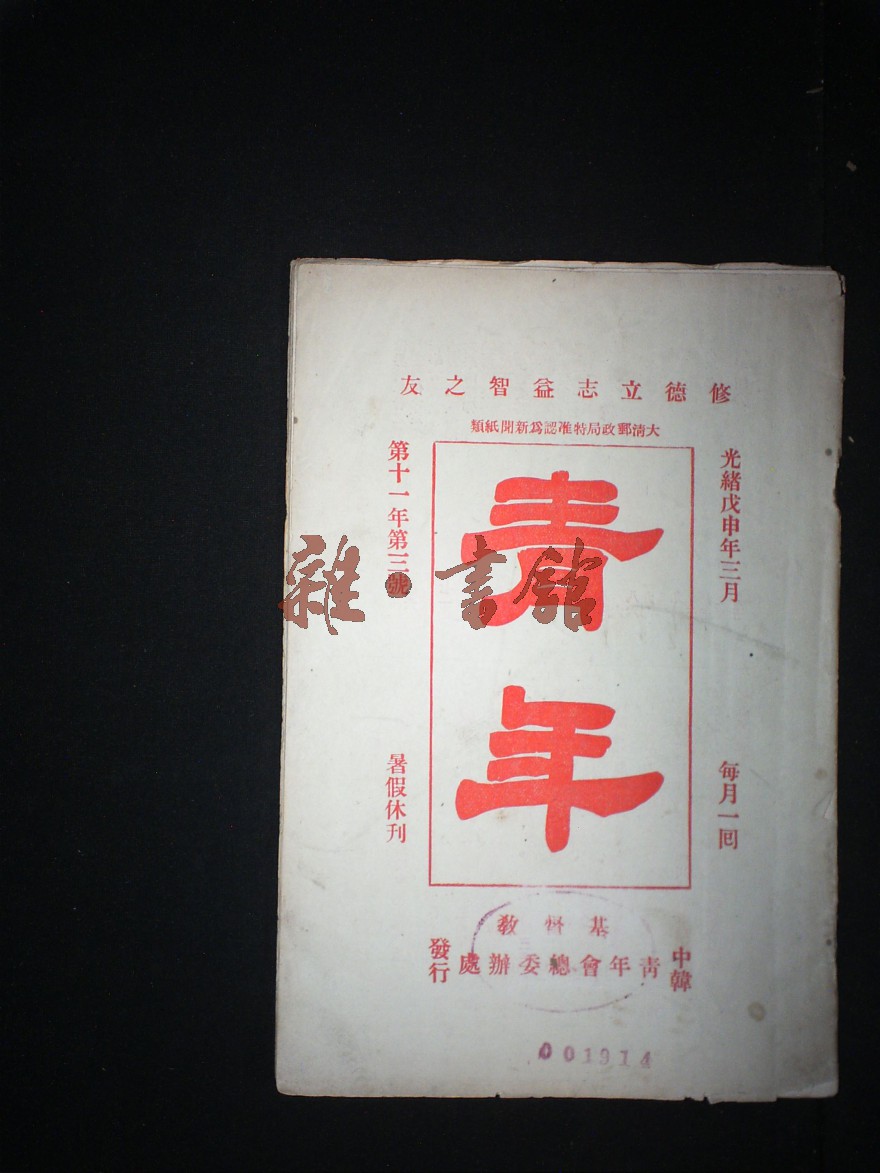 修德立志益智之友
大清郵政局特准認爲新聞紙類
光緒戊申年三月
每月一回
青年
第十一年第三號
暑假休刊
中韓
基督教
青年會總委辦處
發行
001914
雜·書館